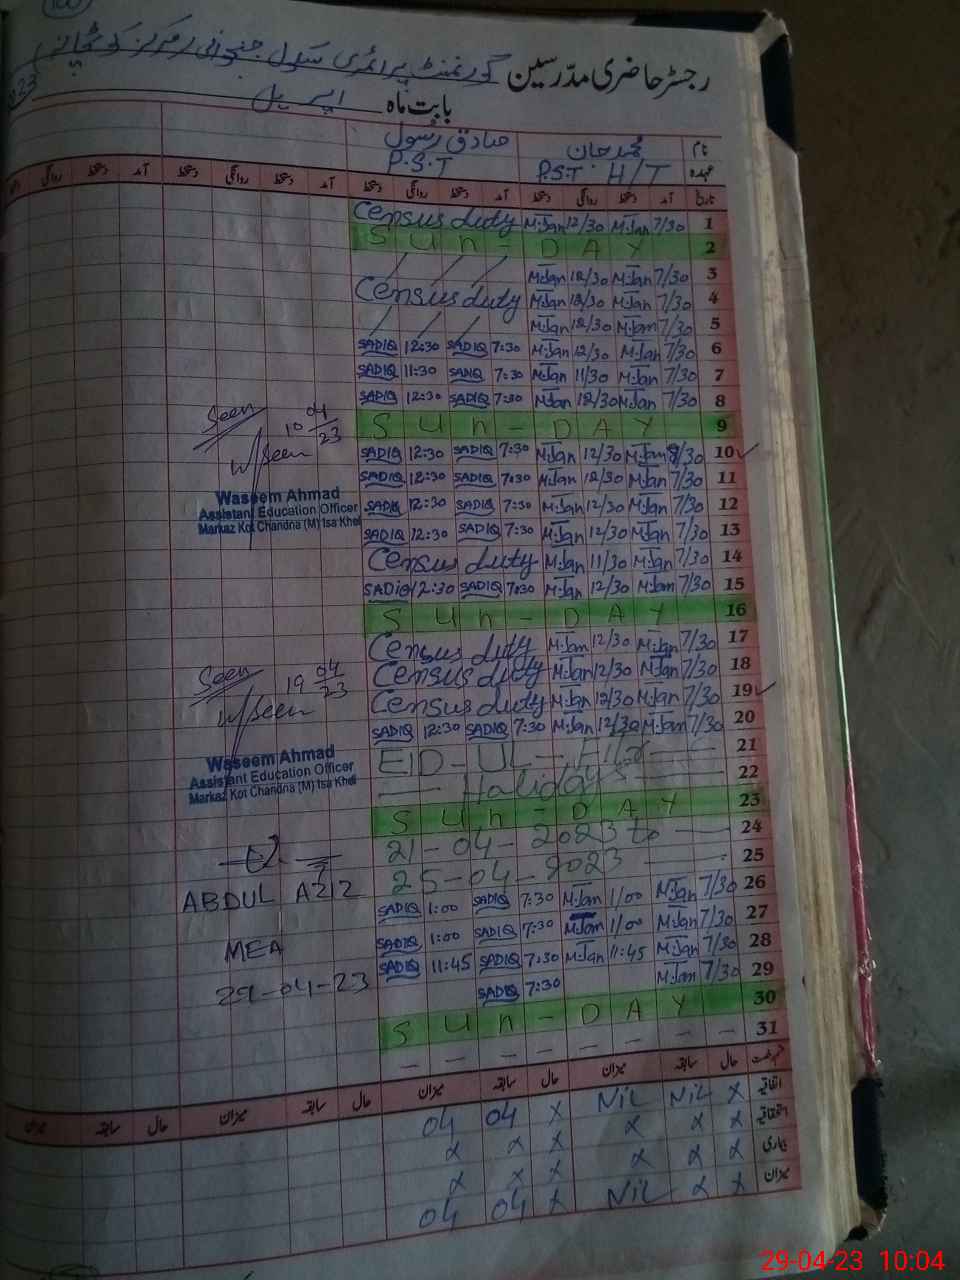 رجسٹر حاضری مدرسین گورنمنٹ پرائمری سکول
بابت ماہ اپریل 023
نام محمد جان صادق رسول
عہدہ P.S.T H/T P.S.T
تاریخ آمد دستخط روانگی دستخط آمد دستخط روانگی دستخط آمد دستخط روانگی دستخط آمد دستخط روانگی
Census duty M.Jan 12/30 M.Jan 7/30 1
SUN-DAY 2
M.Jan 12/30 M.Jan 7/30 3
Census duty M.Jan 12/30 M.Jan 7/30 4
M.Jan 12/30 M.Jan 7/30 5
SADIQ 12:30 SADIQ 7:30 M.Jan 12/30 M.Jan 7/30 6
SADIQ 11:30 SADIQ 7:30 M.Jan 11/30 M.Jan 7/30 7
SADIQ 12:30 SADIQ 7:30 M.Jan 12/30 M.Jan 7/30 8
SUN-DAY 9
SADIQ 12:30 SADIQ 7:30 M.Jan 12/30 M.Jan 7/30 10 ✓
SADIQ 12:30 SADIQ 7:30 M.Jan 12/30 M.Jan 7/30 11
SADIQ 12:30 SADIQ 7:30 M.Jan 12/30 M.Jan 7/30 12
SADIQ 12:30 SADIQ 7:30 M.Jan 12/30 M.Jan 7/30 13
Census duty M.Jan 11/30 M.Jan 7/30 14
SADIQ 12:30 SADIQ 7:30 M.Jan 12/30 M.Jan 7/30 15
SUN-DAY 16
Census duty M.Jan 12/30 M.Jan 7/30 17
Census duty M.Jan 12/30 M.Jan 7/30 18
Census duty M.Jan 12/30 M.Jan 7/30 19 ✓
SADIQ 12:30 SADIQ 7:30 M.Jan 12/30 M.Jan 7/30 20
EID-UL-Fitar 21
Holidays 22
SUN-DAY 23
21-04-2023 to 24
25-04-2023 25
SADIQ 1:00 SADIQ 7:30 M.Jan 1/00 M.Jan 7/30 26
SADIQ 1:00 SADIQ 7:30 M.Jan 1/00 M.Jan 7/30 27
SADIQ 11:45 SADIQ 7:30 M.Jan 11:45 M.Jan 7/30 28
SADIQ 7:30 M.Jan 7/30 29
SUN-DAY 30
— — — — — — — — 31
Seen 10 04/23
W/Seen
Waseem Ahmad
Assistant Education Officer
Markaz Kot Chandna (M) Isa Khel
Seen 19 04/23
W/Seen
Waseem Ahmad
Assistant Education Officer
Markaz Kot Chandna (M) Isa Khel
ABDUL AZIZ
MEA
29-04-23
حال سابقہ میزان حال سابقہ میزان حال سابقہ میزان حال سابقہ میزان
اتفاقیہ x Nil Nil x 04 04
استحقاقیہ x x x x x x
بیماری x x x x x x
میزان x x Nil x 04 04
29-04-23 10:04